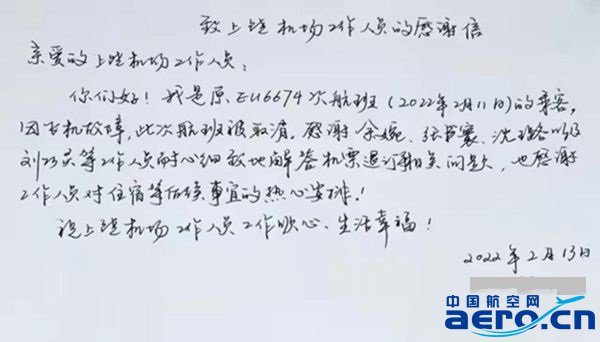 致上饶机场工作人员的感谢信
亲爱的上饶机场工作人员：
你们好！我是原EU6674次航班（2022年2月11日）的乘客，
因飞机故障，此次航班被取消，感谢余婉、张 、沈璐以及
刘 等工作人员耐心细致地解答机票退订相关问题，也感谢
工作人员对住宿等后续事宜的热心安排！
祝上饶机场工作人员工作顺心、生活幸福！
2022年2月13日
中国航空网
aero.cn